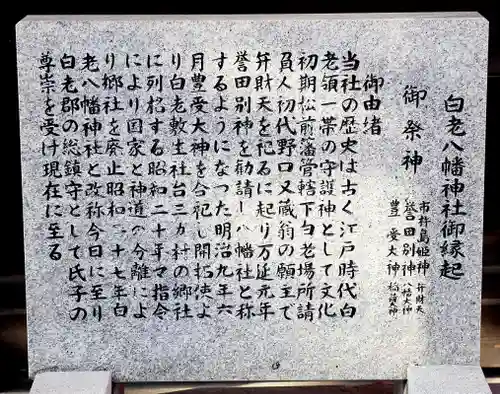 白老八幡神社御縁起
御祭神
市杵島姫神 弁財天
誉田別神 八幡大神
豊受大神 稲荷大神
御由緒
当社の歴史は古く江戸時代白
老領一帯の守護神として文化
初期松前藩管轄下白老場所請
負人初代野口又蔵翁の願主で
弁財天を祀るに起り万延元年
誉田別神を勧請し八幡社と称
するようになった明治九年六
月豊受大神を合祀し開拓使よ
り白老敷生社台三カ村の郷社
に列格する昭和二十年マ指令
により国家と神道の分離によ
り郷社を廃止昭和二十七年白
老八幡神社と改称今日に至り
白老郡の総鎮守として氏子の
尊崇を受け現在に至る